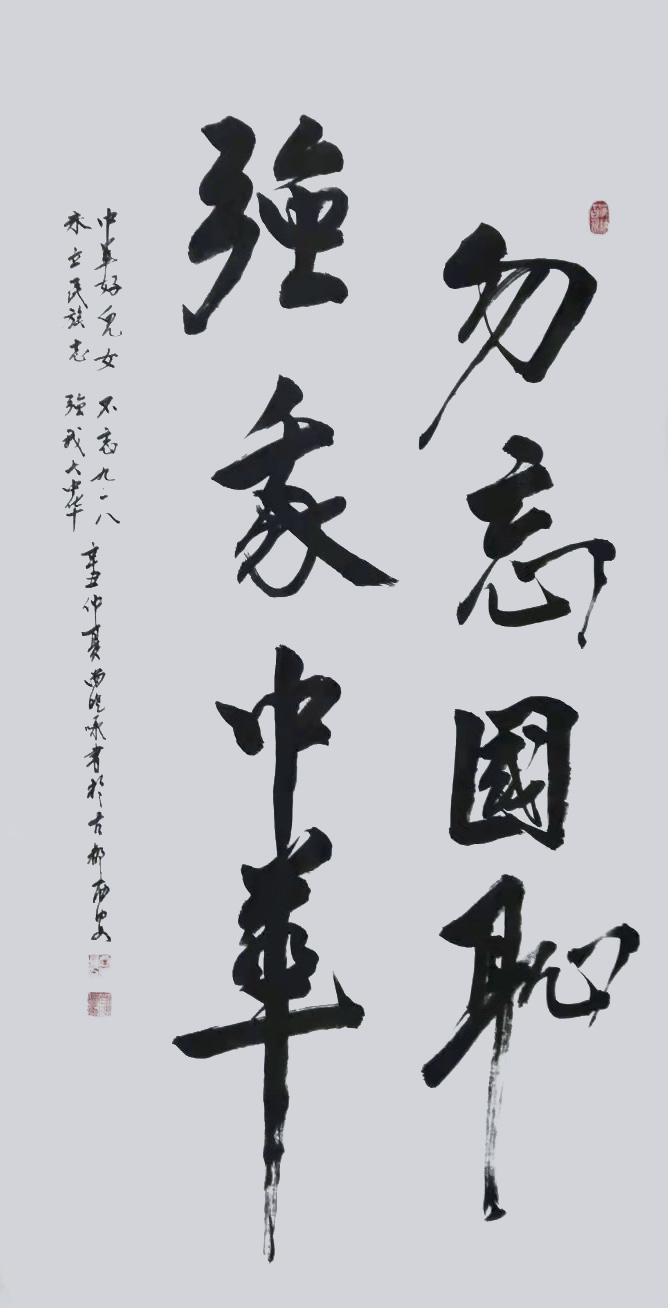 勿忘國恥
強我中華
中華好兒女 不忘九一八
永立民族志 強我大中华
辛丑仲夏 書於古都西安